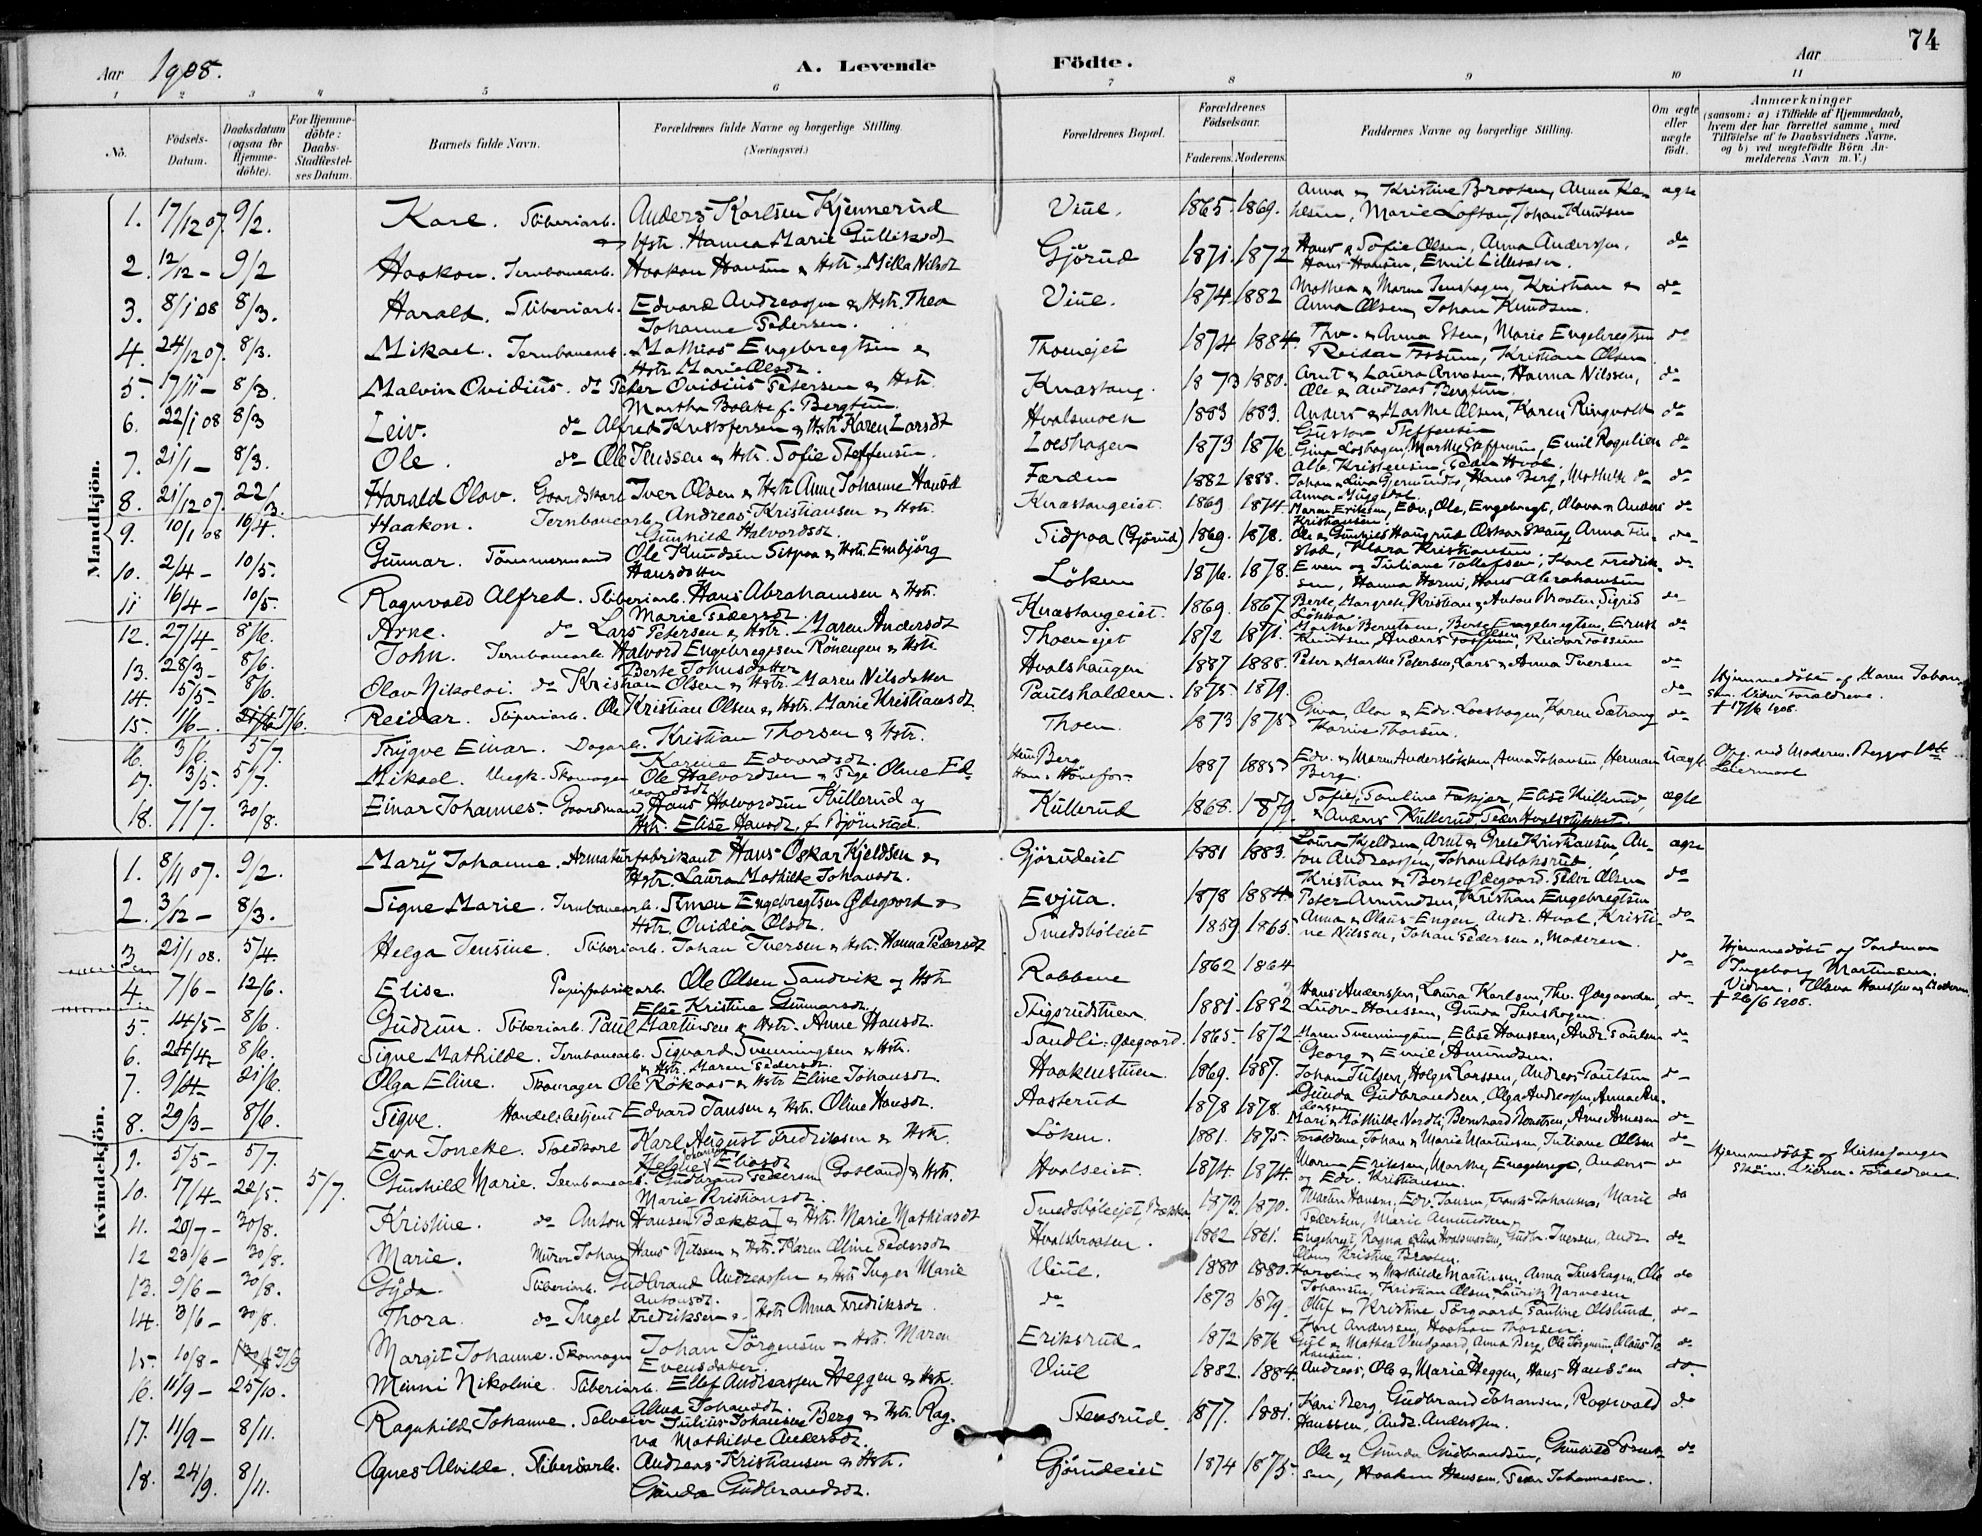 74
Aar 1908. A. Levende Födte. Aar
1 2 3 4 5 6 7 8 9 10 11
No. Födsels-Datum. Daabsdatum (ogsaa for Hjemme-döbte). For Hjemme-döbte: Daabs-Stadfæstel-ses Datum. Barnets fulde Navn. Forældrenes fulde Navne og borgerlige Stilling. (Næringsvei.) Forældrenes Bopæl. Forældrenes Födselsaar. Faderens. Moderens. Faddernes Navne og borgerlige Stilling. Om ægte eller uægte födt. Anmærkninger (saasom: a) i Tilfælde af Hjemmedaab, hvem der har forrettet samme, med Tilföielse af to Daabsvidners Navne, og b) ved uægtefödte Börn An-melderens Navn m. V.)
Mandkjön.
1. 17/12 07. 9/2. Kare. Sliberiarb. Anders Karlsen Kjennerud Viul. 1865. 1869. Anna & Kristine Braaten, Anna
Hstr. Hanna Marie Gulliksdt Marie Loftan, Johan Knutsen
2. 12/12 – 9/2 Haakon. Jernbanearb. Haakon Hansen & Hstr. Milla Nilsdt Gjörud 1871. 1872 Hans & Sofie Olsen, Anna Anderssen, do
Hans Hansen, Emil Lilleaasen.
3. 8/1 08 8/3. Harald. Sliberiarb. Edvard Andreassen & Hstr. Thea Viul. 1874. 1882 Mathea & Maren Jenshagen, Kristian & do
Johanne Pedersen. Anna Olsen, Johan Knudsen.
4. 24/12 07. 8/3. Mikael. Jernbanearb. Mathias Engebregtsen & Thoenejet 1874 1884. Thv. & Anna Sten, Marie Engebregtsen do
Hstr. Marie Olsdt. Reidar Fossum, Kristian Olsen
5. 17/11 – 8/3. Malvin Ovidius. do Peter Ovidius Petersen & Hstr. Knastang. 1873 1880. Arnt & Laura Arnesen, Hanna Nilssen, do
Martha Bolette f. Bergsun. Ole & Andreas Bergsun.
6. 22/1 08 8/3 Leiv. do Alfred Kristofersen & Hstr. Karen Larsdt Hvalsmoen 1883 1883. Anders & Marthe Olsen, Karen Ringvold do
Gustav Steffensen
7. 21/1 – 8/3. Ole. do Ole Jenssen & Hstr. Sofie Steffensen. Loeshagen 1873 1876. Gina Loeshagen, Marthe Steffensen, Emil Rognlien do
Alb. Kristensen, Peder Hval.
8. 21/12 07. 22/3. Harald Olav. Gaardskarl Iver Olsen & Hstr. Anne Johanne Hansdt Færden 1882 1888. Johan & Lina Gjermundbo, Hans Berg, Mathilde & do
Anna Huggedal.
9. 10/1 08 16/4. Haakon. Jernbanearb. Andreas Kristiansen & Hstr. Knastangeiet. 1869 1874. Maren Eriksen, Edv., Ole, Engebregt, Olava & Anders do
Gunhild Halvordsdt Kristiansen.
10. 2/4 – 10/5. Gunnar. Tömmermand Ole Knudsen Sidpaa & Hstr. Embjörg Sidpaa (Gjörud) 1869. 1878. Ole & Gunhild Haugrud, Oskar Skaug, Anna do
Hansdatter Klara Kristiansen.
11 16/4 – 10/5. Ragnvald Alfred. Sliberiarb. Hans Abrahamsen & Hstr. Löken 1876. 1878. Even og Juliane Tollefsen, Karl Fredrik- do
Marie Pedersdt. sen, Hanna Hermi, Hans Abrahamsen
12. 27/4 – 8/6. Arne. do Lars Petersen & Hstr. Maren Andersdt Knastangeiet. 1869. 1867. Berte, Margrete, Kristian & Anton Braaten, Sigrid do
Lökka.
13. 28/3 – 8/6. John. Jernbanearb. Halvord Engebregtsen Rönengen & Hstr. Thoenejet 1872 1871. Marthe Berntsen, Berte Engebregtsen, Ernst do
Berte Johnsdatter Knutsen, Anders Fossum, Reidar Fossum
14. 15/5 – 8/6. Olav Nikolai. do Kristian Olsen & Hstr. Maren Nilsdatter Hvalshaugen 1887 1888. Peter & Marthe Petersen, Lars & Anna Iversen do
15. 1/6 –. 17/6. Reidar. Sliperiarb. Ole Kristian Olsen & Hstr. Marie Kristiansdt. Paulshalden. 1875 1879. do Hjemmedöbt af Maren Johan-
sen. Vidner Forældrene.
† 17/6 1908.
16. 3/6. 5/7. Trygve Einar. Dagarb. Kristian Thorsen & Hstr. Thoen. 1873 1875 Gina, Olav & Edv. Loeshagen, Karen Sætrang do
Karine Edvardsdt. Karine Thorsen.
17. 3/5. 5/7. Mikael. Ungk. Skomager Ole Halvordsen & Pige Oline Ed- Hun: Berg 1887 1885 Edv. & Maren Anderslökken, Anna Johansen, Herman uægt. Opg. ved Moderen. Begges 1ste
vardsdt Han: Hönefos Berg. Leiermaal
18. 7/7. 30/8. Einar Johannes. Gaardmand Hans Halvordsen Küllerud og Küllerud 1868. 1879. Sofie, Pauline Fækjær, Elise Küllerud, ægte
Hstr. Elise Hansdt. f. Björnstad. & Anders Küllerud, Peder Hvalsstykket.
Kvindekjön.
1. 8/11 07. 9/2. Mary Johanne. Armaturfabrikant Hans Oskar Kjeldsen & Gjörudeiet 1881 1883. Laura Kjeldsen, Arnt & Grete Kristiansen, An- ægte
Hstr. Laura Mathilde Johansdt. ton Andreassen, Johan Aslaksrud
2. 3/12 – 8/3. Signe Marie. Jernbanearb. Simen Engebregtsen Ødegaard & Evjua. 1878 1884. Kristian & Berte Ødegaard, Peder Olsen do
Hstr. Ovidia Olsdt. Peter Amundsen, Kristian Engebregtsen
3 21/1 08. 5/4. Helga Jensine. Sliberiarb. Johan Iversen & Hstr. Hanna Pedersdt Smedsböleiet 1859 1865. Anna & Olaus Engen, Andr. Hval, Kristi- do
ne Nilssen, Johan Pedersen & Moderen.
4 7/6 – 12/6. Elise. Papirfabrikarb. Ole Olsen Sandvik og Hstr. Robbene 1862 1864 do Hjemmedöbt af Jordmor
Else Kristine Gunnarsdt. Ingeborg Martinsen.
Vidner. Olava Hanssen & Moderen.
† 26/6 1908.
5. 14/5 – 8/6. Gudrun. Sliberiarb. Paul Martinsen & Hstr. Anne Hansdt. Stigsrudstuen. 1881. 1882 Hans Anderssen, Laura Karlsen, Thv. Ødegaarden, do
Ludv. Hanssen, Gunda Jenshagen.
6. 24/4 – 8/6. Signe Mathilde. Jernbanearb. Sigvard Svenningsen & Hstr. Sandli. Ødegaard. 1865. 1872 Maren Svenningsen, Elise Hanssen, Andr. Paulsen do
& Hstr. Maren Pedersdt. Georg & Emil Amundsen.
7. 9/4 – 21/6. Olga Eline. Skomager Ole Rökaas & Hstr. Eline Johansdt. Haakenstuen. 1869. 1887. Johan Julsen, Holger Larssen, Andreas Paulsen do
8. 29/3 – 8/6. Signe. Handelsbetjent Edvard Jansen & Hstr. Oline Hansdt. Aasterud 1878 1878. Gunda Gudbrandsen, Olga Andreassen,
Marie & Mathilde Nordli, Bernhard Berntsen, Arne Arnesen do
9. 5/5 – 5/7. Eva Joneke. Stedkarl Karl August Fredriksen & Hstr. Löken. 1881. 1875. Forældrene, Johan & Marie Martinsen, Juliane Olsen do
Eliasdt
10. 17/4 – 22/5. 5/7. Gunhild Marie. Jernbanearb. Gudbrand Pedersen (Gotland) & Hstr. Hvalseiet. 1874. 1874. Maren Eriksen, Marthe, Engebregt, Anders do Hjemmedöbt af Kirkesanger
Marie Kristiansdt. og Edv. Kristiansen. Sköien. Vidner. Forældrene
11. 20/7 – 30/8. Kristine. do Anton Hansen [Bækka] & Hstr. Marie Mathiasdt Smedsböleiet, Bækka 1873. 1870. Marten Hansen, Edv. Jansen, Frants Johansen, Marie do
Pedersen, Marie Amundsen
12 23/6 – 30/8. Marie. Murer Johan Hans Nilssen & Hstr. Karen Oline Pedersdt Hvalsbraaten. 1862 1861. Engebregt, Ragna & Lina Hvalsmoen, Gudbr. Iversen, Andr. do
Olsen, Kristine Braaten.
13. 9/6 – 30/8. Gyda. Sliberiarb. Gudbrand Andreassen & Hstr. Inger Marie Viul. 1880 1880. Karoline & Mathilde Martinsen, Anna Jenshagen, Ole do
Antonsdt. Johansen, Kristian Olsen, Laurits Narvesen
14. 3/6 – 30/8. Thora. do Ingel Fredriksen & Hstr. Anna Fredriksdt. do 1873 1879. Ottef & Kristine Sörgaard, Pauline Olslund, do
Karl Andersen, Haakon Thorsen.
15. 10/8 – 27/9 Margit Johanne. Skomager Johan Jörgensen – Hstr. Maren Eriksrud. 1872 1876 Gul & Mathea Vendgaard, Anna Berg, Ole Jörgensen, Olaus Jo- do
Evensdatter. hansen.
16. 11/9 – 25/10. Minni Nikoline. Sliberiarb. Ellef Andreassen Heggen & Hstr. Viul 1882. 1884 Andreas, Ole & Maria Heggen, Hans Hanssen do.
Alma Johansdt.
17. 11/9 – 8/11. Ragnhild Johanne. Selveier Julius Johansen Berg & Hstr. Rag- Stensrud. 1877. 1881. Kari Berg, Gudbrand Johansen, Ragnvald do
na Mathilde Andersdt. Hanssen, Andr. Anderssen.
18. 24/9. 8/11. Agnes Alvilde. Sliberiarb. Andreas Kristiansen & Hstr. Gjörudeiet 1874 1875. Ole og Gunda Gudbrandsen, Gunhild Lorent- do
Gunda Gudbrandsdt. sen, Haaken Hansen, Peder Johannessen.